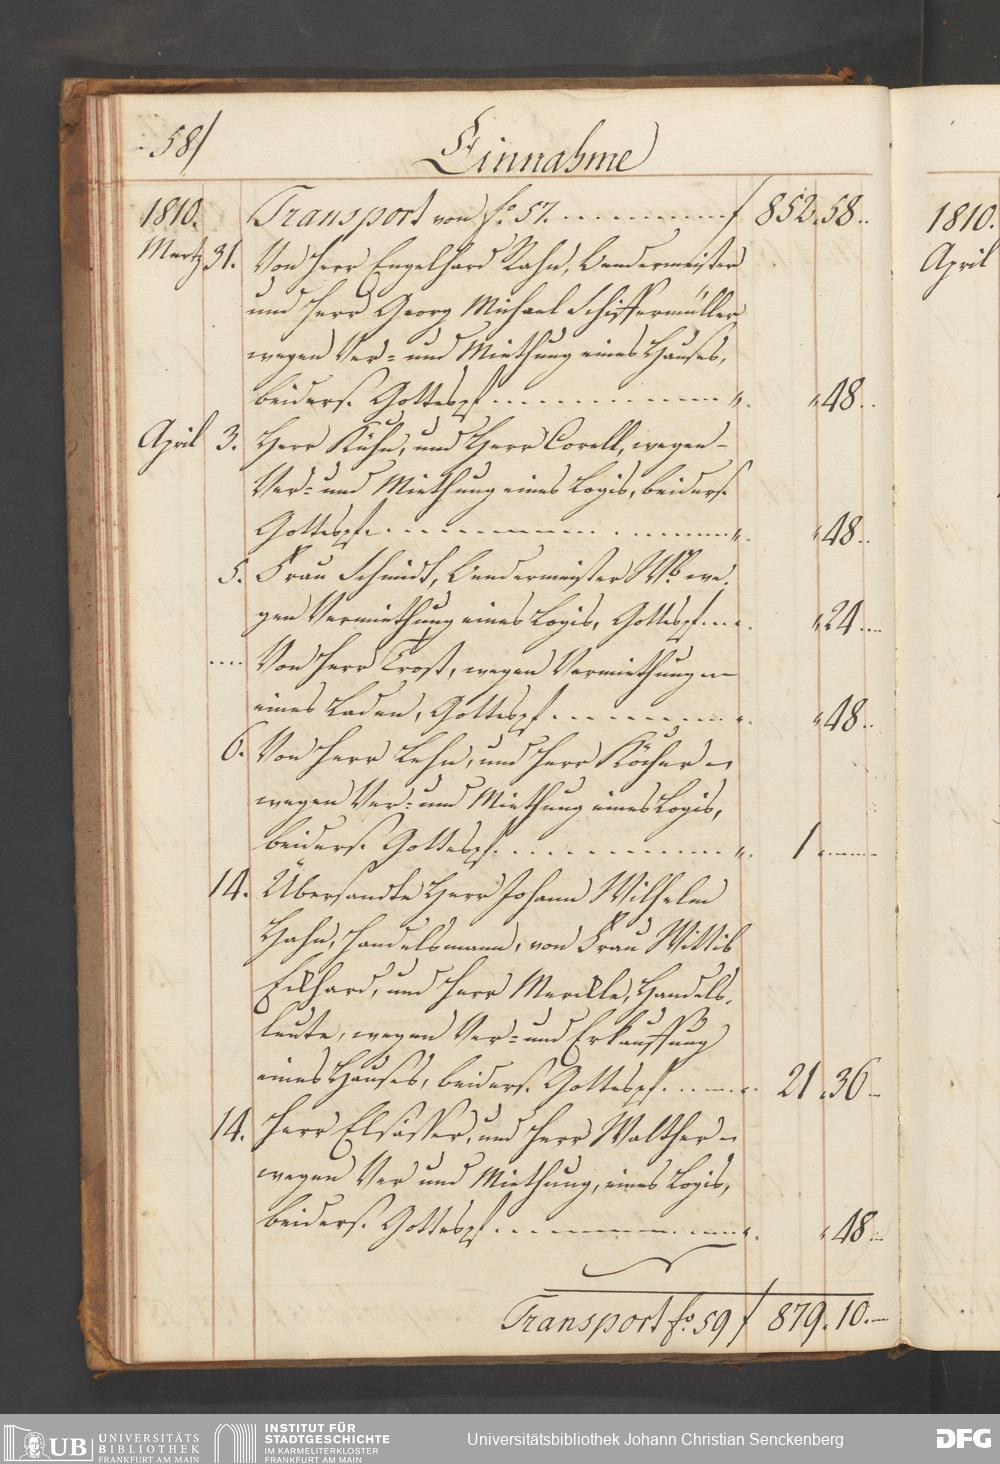 58/
Einnahme
1810. Transport von fo. 57. f 852.58..
Mertz 31. Von Herr Engelhard Rahn, Bendermeister
und Herr Georg Michael Schiffermüller
wegen Ver= und Miethung eines Hauses,
beiders. Gottespf. " " 48..
April 3. Herr Kühn, und Herr Corell, wegen
Ver= und Miethung eines Logis, beiders.
Gottespf. " " 48..
5. Frau Schmidt, Bendermeister Wb. we=
gen Vermiethung eines Logis, Gottespf. " " 24
Von Herr Trost, wegen Vermiethung
eines Laden, Gottespf. " " 48..
6. Von Herr Lehn, und Herr Köcher
wegen Ver= und Miethung eines Logis,
beiders. Gottespf. " 1
14. Übersandte Herr Johann Wilhelm
Hahn, Handelsmann, von Frau Wittib
Eckhard, und Herr Merckle, Handels=
leute, wegen Ver= und Erkauffung
eines Hauses, beiders. Gottespf. " 21.36
14. Herr Elsässer, und Herr Walther
wegen Ver und Miethung, eines Logis,
beiders. Gottespf. " " 48
Transport fo. 59 f 879.10.
1810.
April
UB UNIVERSITÄTS
BIBLIOTHEK
FRANKFURT AM MAIN
INSTITUT FÜR
STADTGESCHICHTE
IM KARMELITERKLOSTER
FRANKFURT AM MAIN
Universitätsbibliothek Johann Christian Senckenberg
DFG